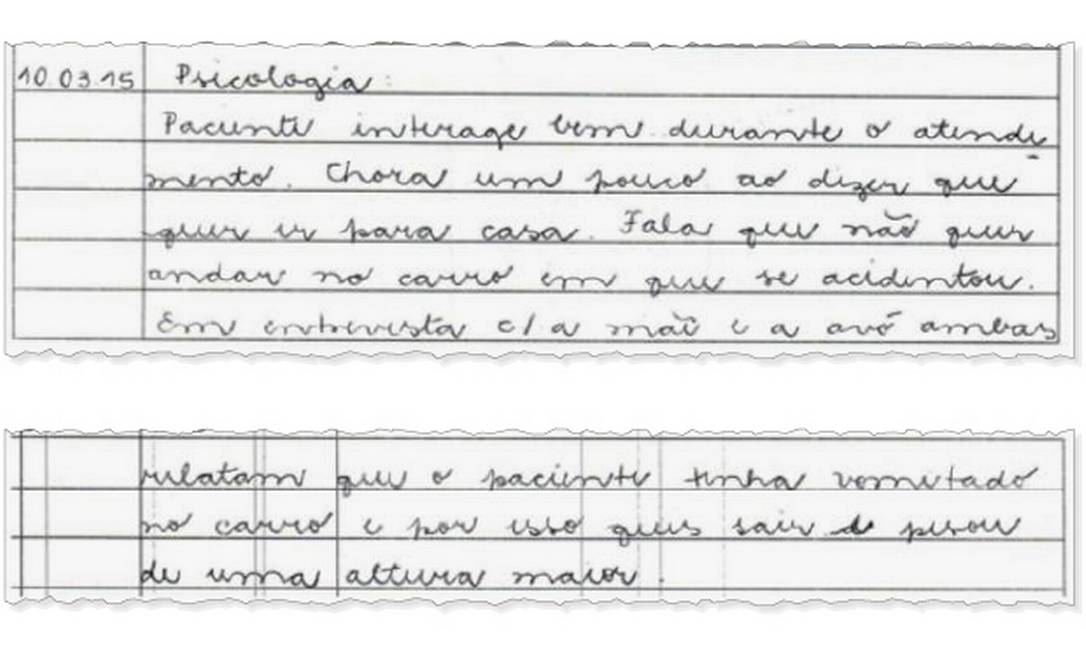 10.03.15 Psicologia:
Paciente interage bem durante o atendi
mento. Chora um pouco ao dizer que
quer ir para casa. Fala que não quer
andar no carro em que se acidentou.
Em entrevista c/ a mãe e a avó ambas
relatam que o paciente tinha vomitado
no carro e por isso quis sair e pisou
de uma altura maior.